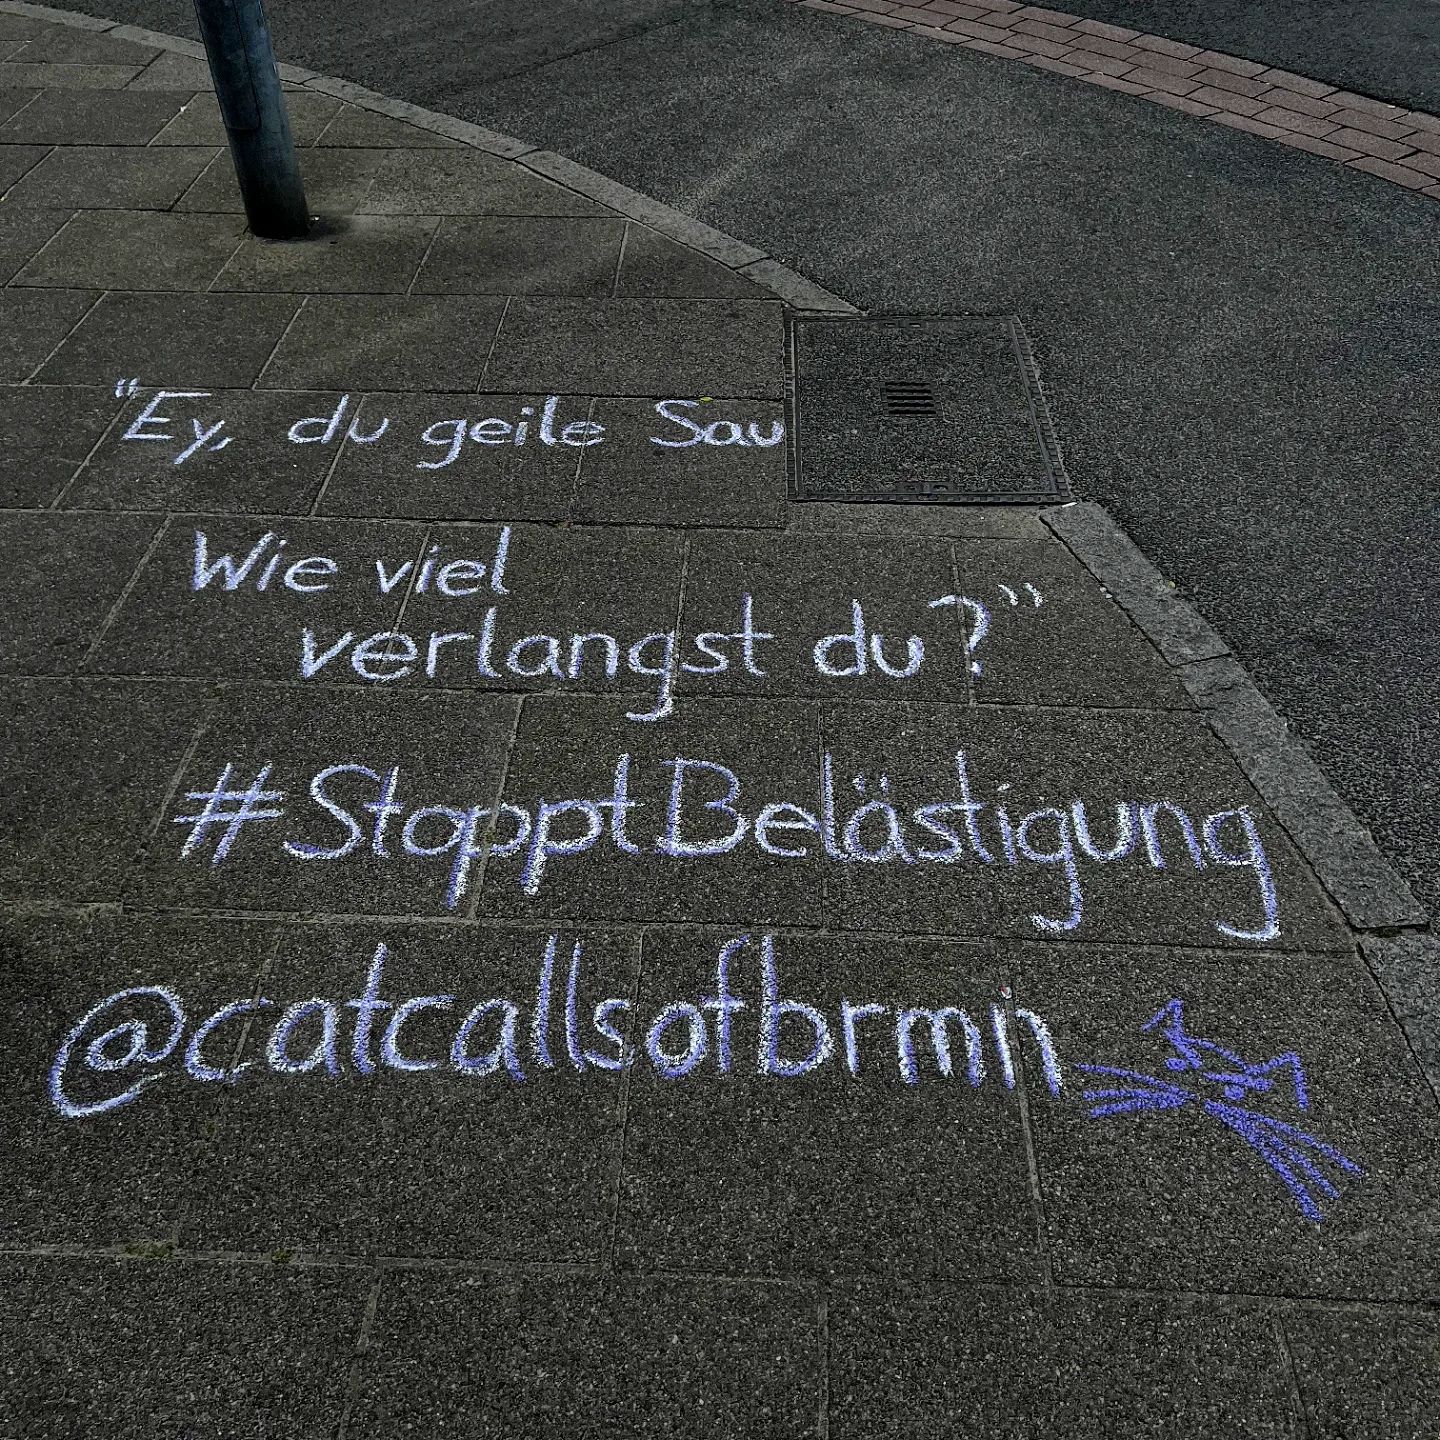 "Ey, du geile Sau
Wie viel
verlangst du?"
#StopptBelästigung
@catcallsofbrmn